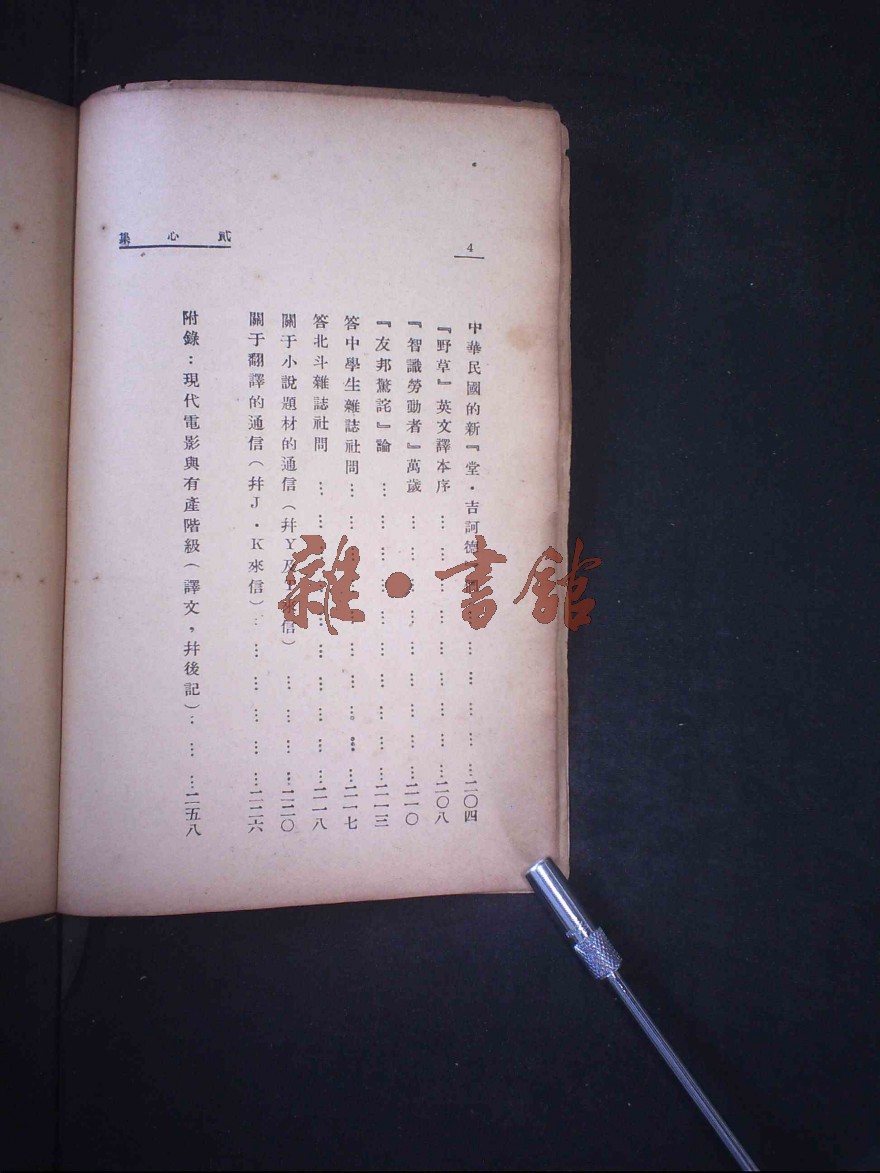 貳心集
4
中華民國的新『堂・吉訶德 … … … …二〇四
『野草』英文譯本序 … … … … … … … … …二〇八
『智識勞動者』萬歲 … … … … … … … … …二一〇
『友邦驚詫』論 … … … … … … … … … …二一三
答中學生雜誌社問… … … … … … … … …二一七
答北斗雜誌社問 … … … … … … … … … …二一八
關于小說題材的通信（幷Y及T來信） … … … …二二〇
關于翻譯的通信（幷J・K來信）… … … … … …二二六
附錄：現代電影與有產階級（譯文，幷後記）… … …二五八
雜・書館